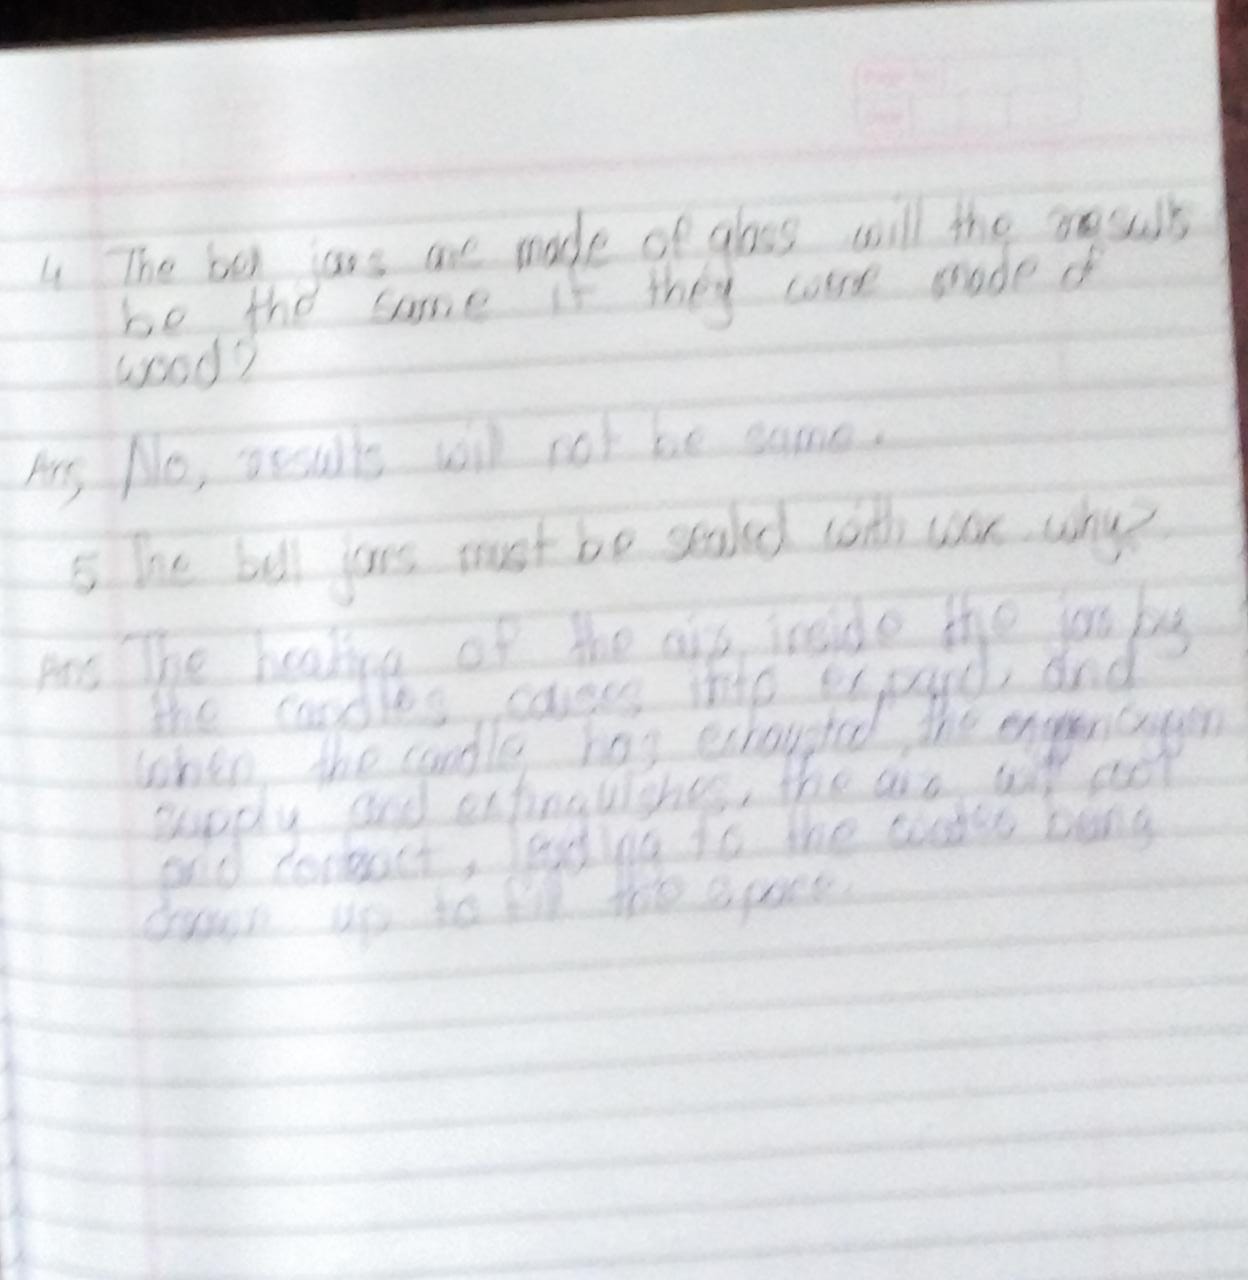 4 The bell jars are made of glass will the results
be the same if they were made of
wood?
Ans, No, results will not be same.
5 The bell jars must be sealed with wax. why?
Ans The heating of the air inside the jar by
the candles causes it to expand, and
when the candle has exhausted the oxygen
supply and extinguishes, the air will cool
and contract, leading to the being
drawn up to fill the space.